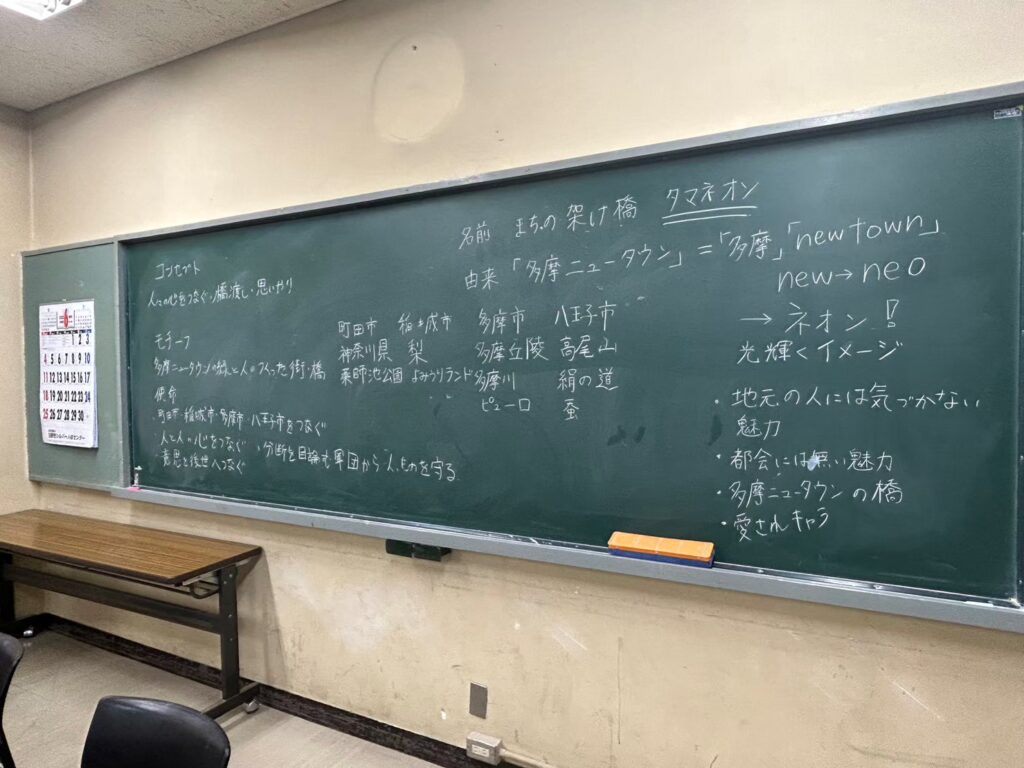 名前 まちの架け橋 タマネオン
由来 「多摩ニュータウン」=「多摩」「new town」
new→neo
→ ネオン!
光輝くイメージ
・地元の人には気づかない
魅力
・都会には無い魅力
・多摩ニュータウンの橋
・愛されキャラ
コンセプト
人々の心をつなぐ・橋渡し・思いやり
モチーフ
多摩ニュータウンの緑と人のつくった街・橋
使命
町田市・稲城市・多摩市・八王子市をつなぐ
・人と人の心をつなぐ ・分断を目論む軍団から人、ものを守る
・意思を後世へつなぐ
町田市 稲城市 多摩市 八王子市
神奈川県 梨 多摩丘陵 高尾山
薬師池公園 よみうりランド 多摩川 絹の道
ピューロ 蚕
6
1 2 3
4 5 6 7 8 9 10
11 12 13 14 15 16 17
18 19 20 21 22 23 24
25 26 27 28 29 30